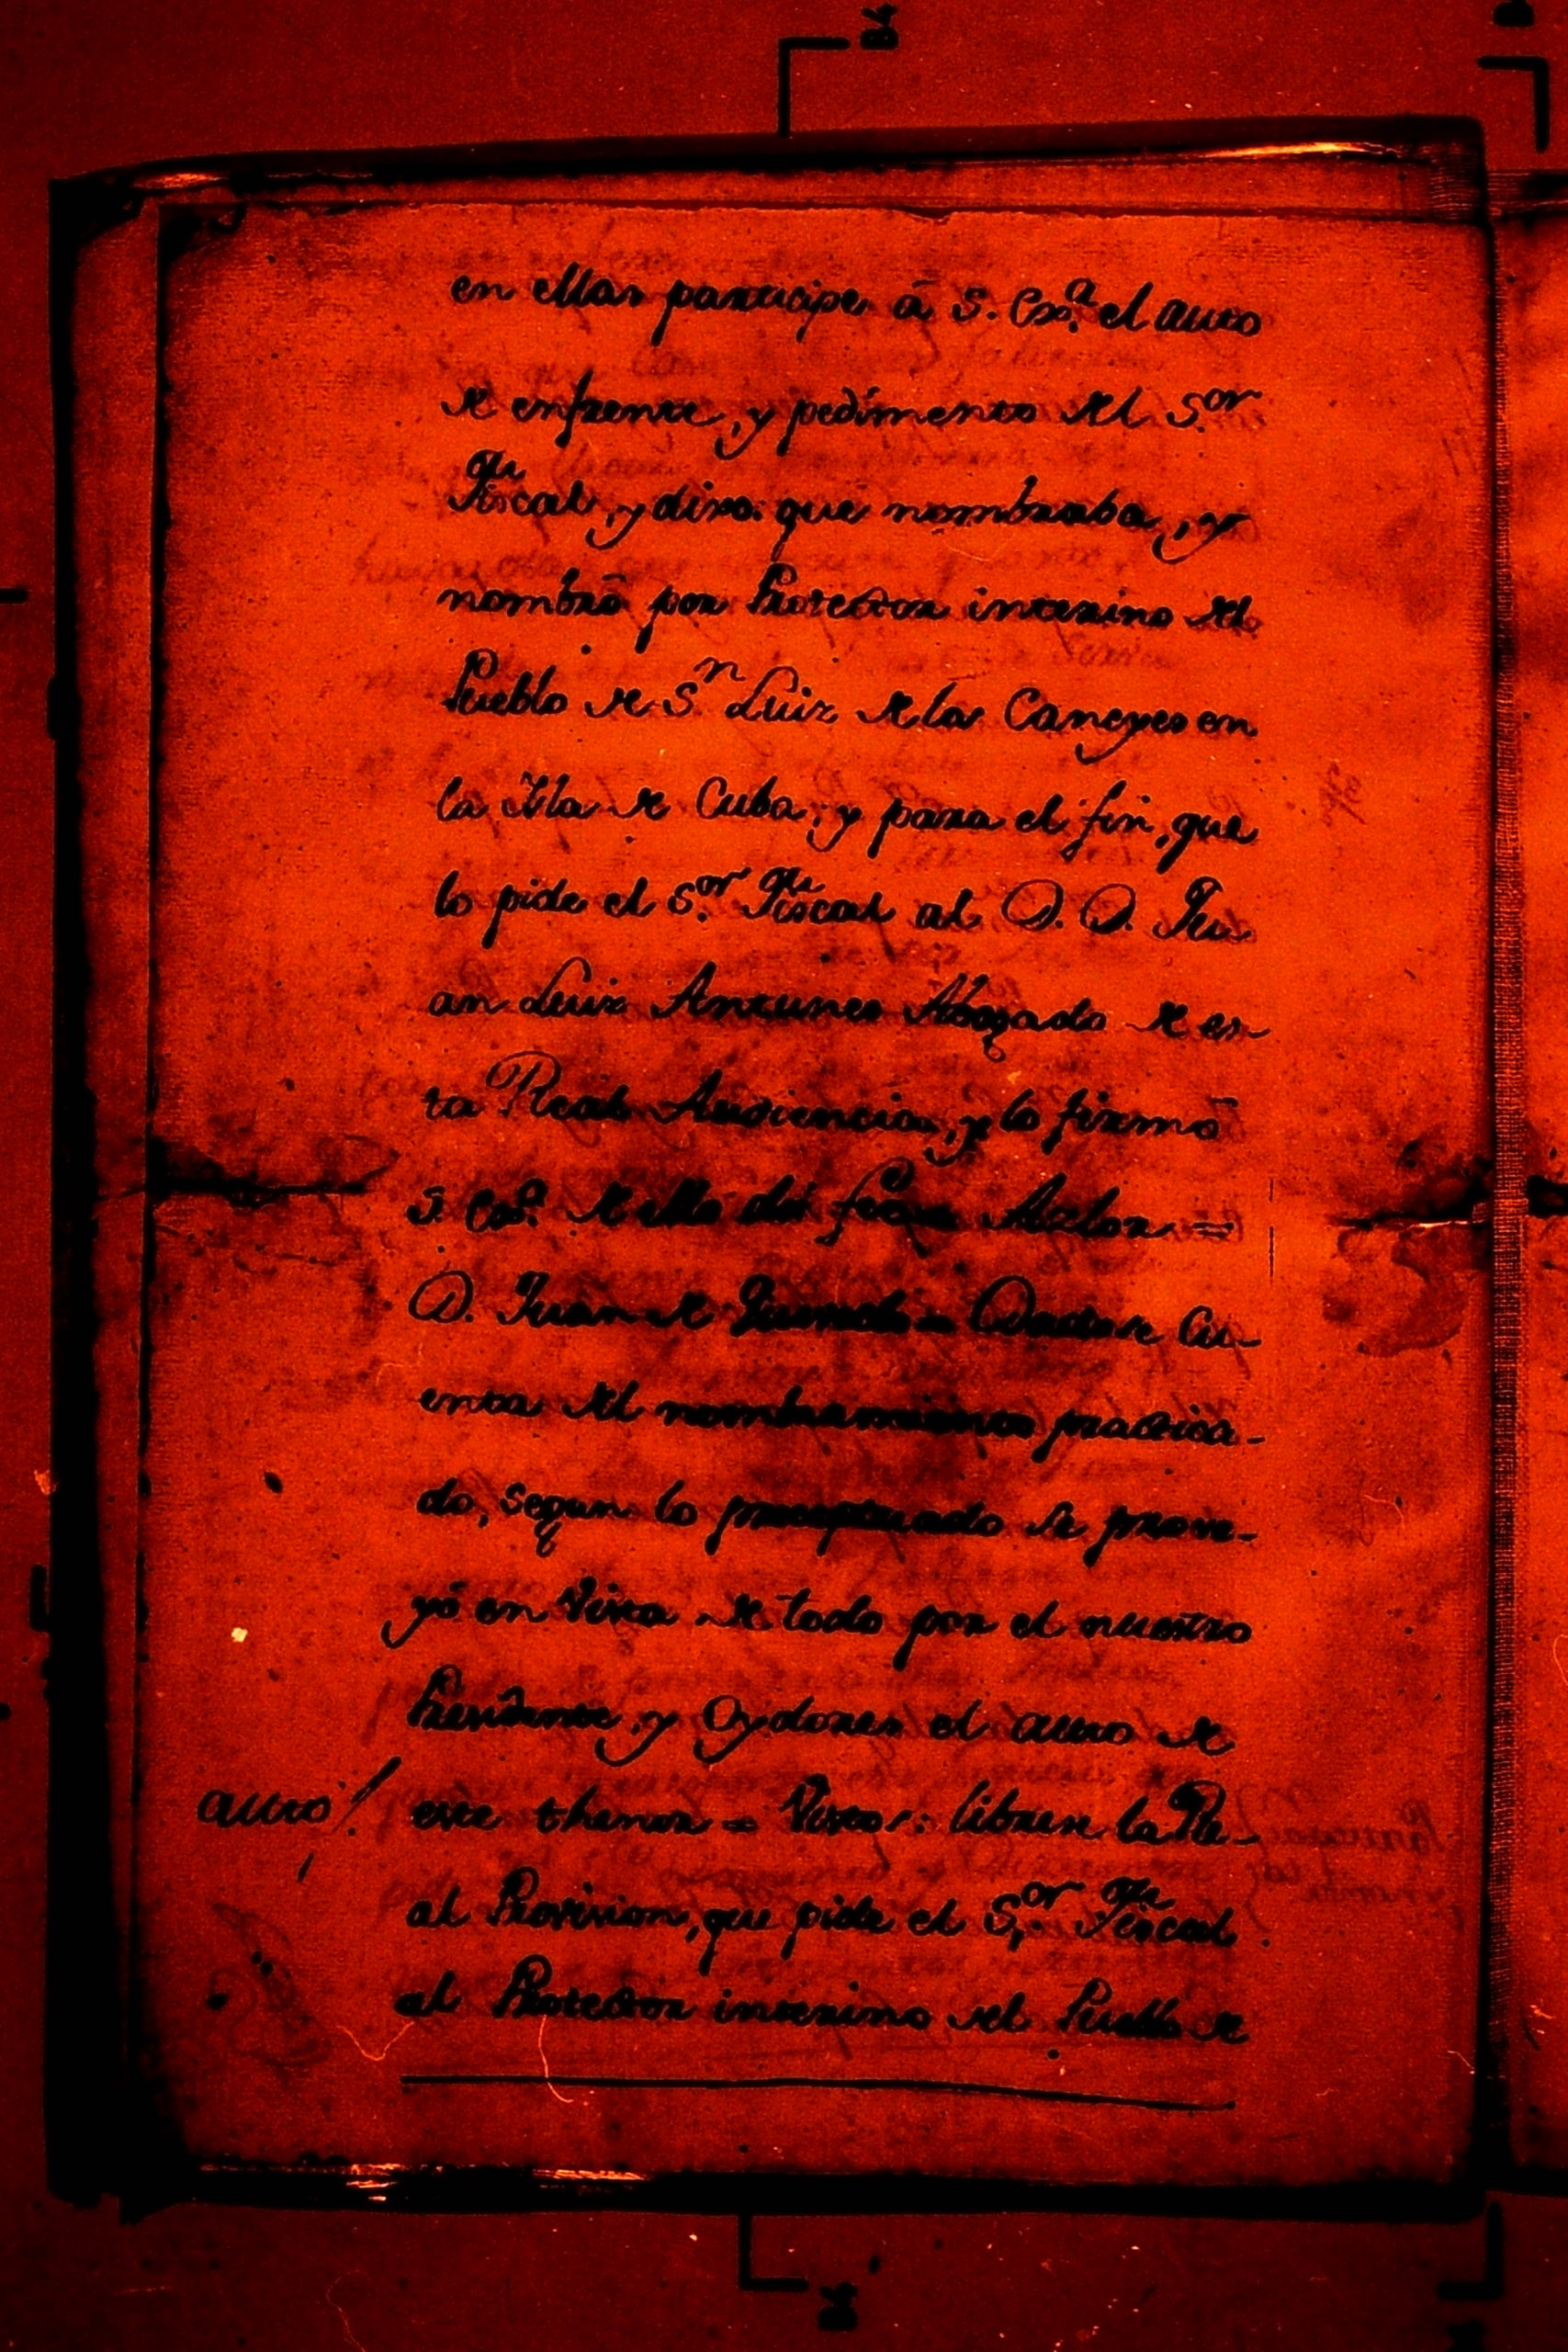 en ellas participe á S. Exª. el auto
de enfrente, y pedimento del S.or
Fiscal, y dixo: que nombraba, y
nombró por Protector interino del
Pueblo de S.n Luiz de los Caneyes en
la Isla de Cuba, y para el fin, que
lo pide el S.or Fiscal al D. D. Ju
an Luiz Antunes Abogado de es
ta Real Audiencia, y lo firmó
S. Exª. de ello doi fee Azlor =
D. Juan de = Dadose Cu-
enta del nombramiento practica-
do, segun lo se prove-
yó en Vista de todo por el nuestro
Presidente, y Oydores el auto de
auto/. este thenor = Vistos: librese la Re-
al Provision, que pide el S.or Fiscal
al Protector interino del Pueblo de
B4
B4